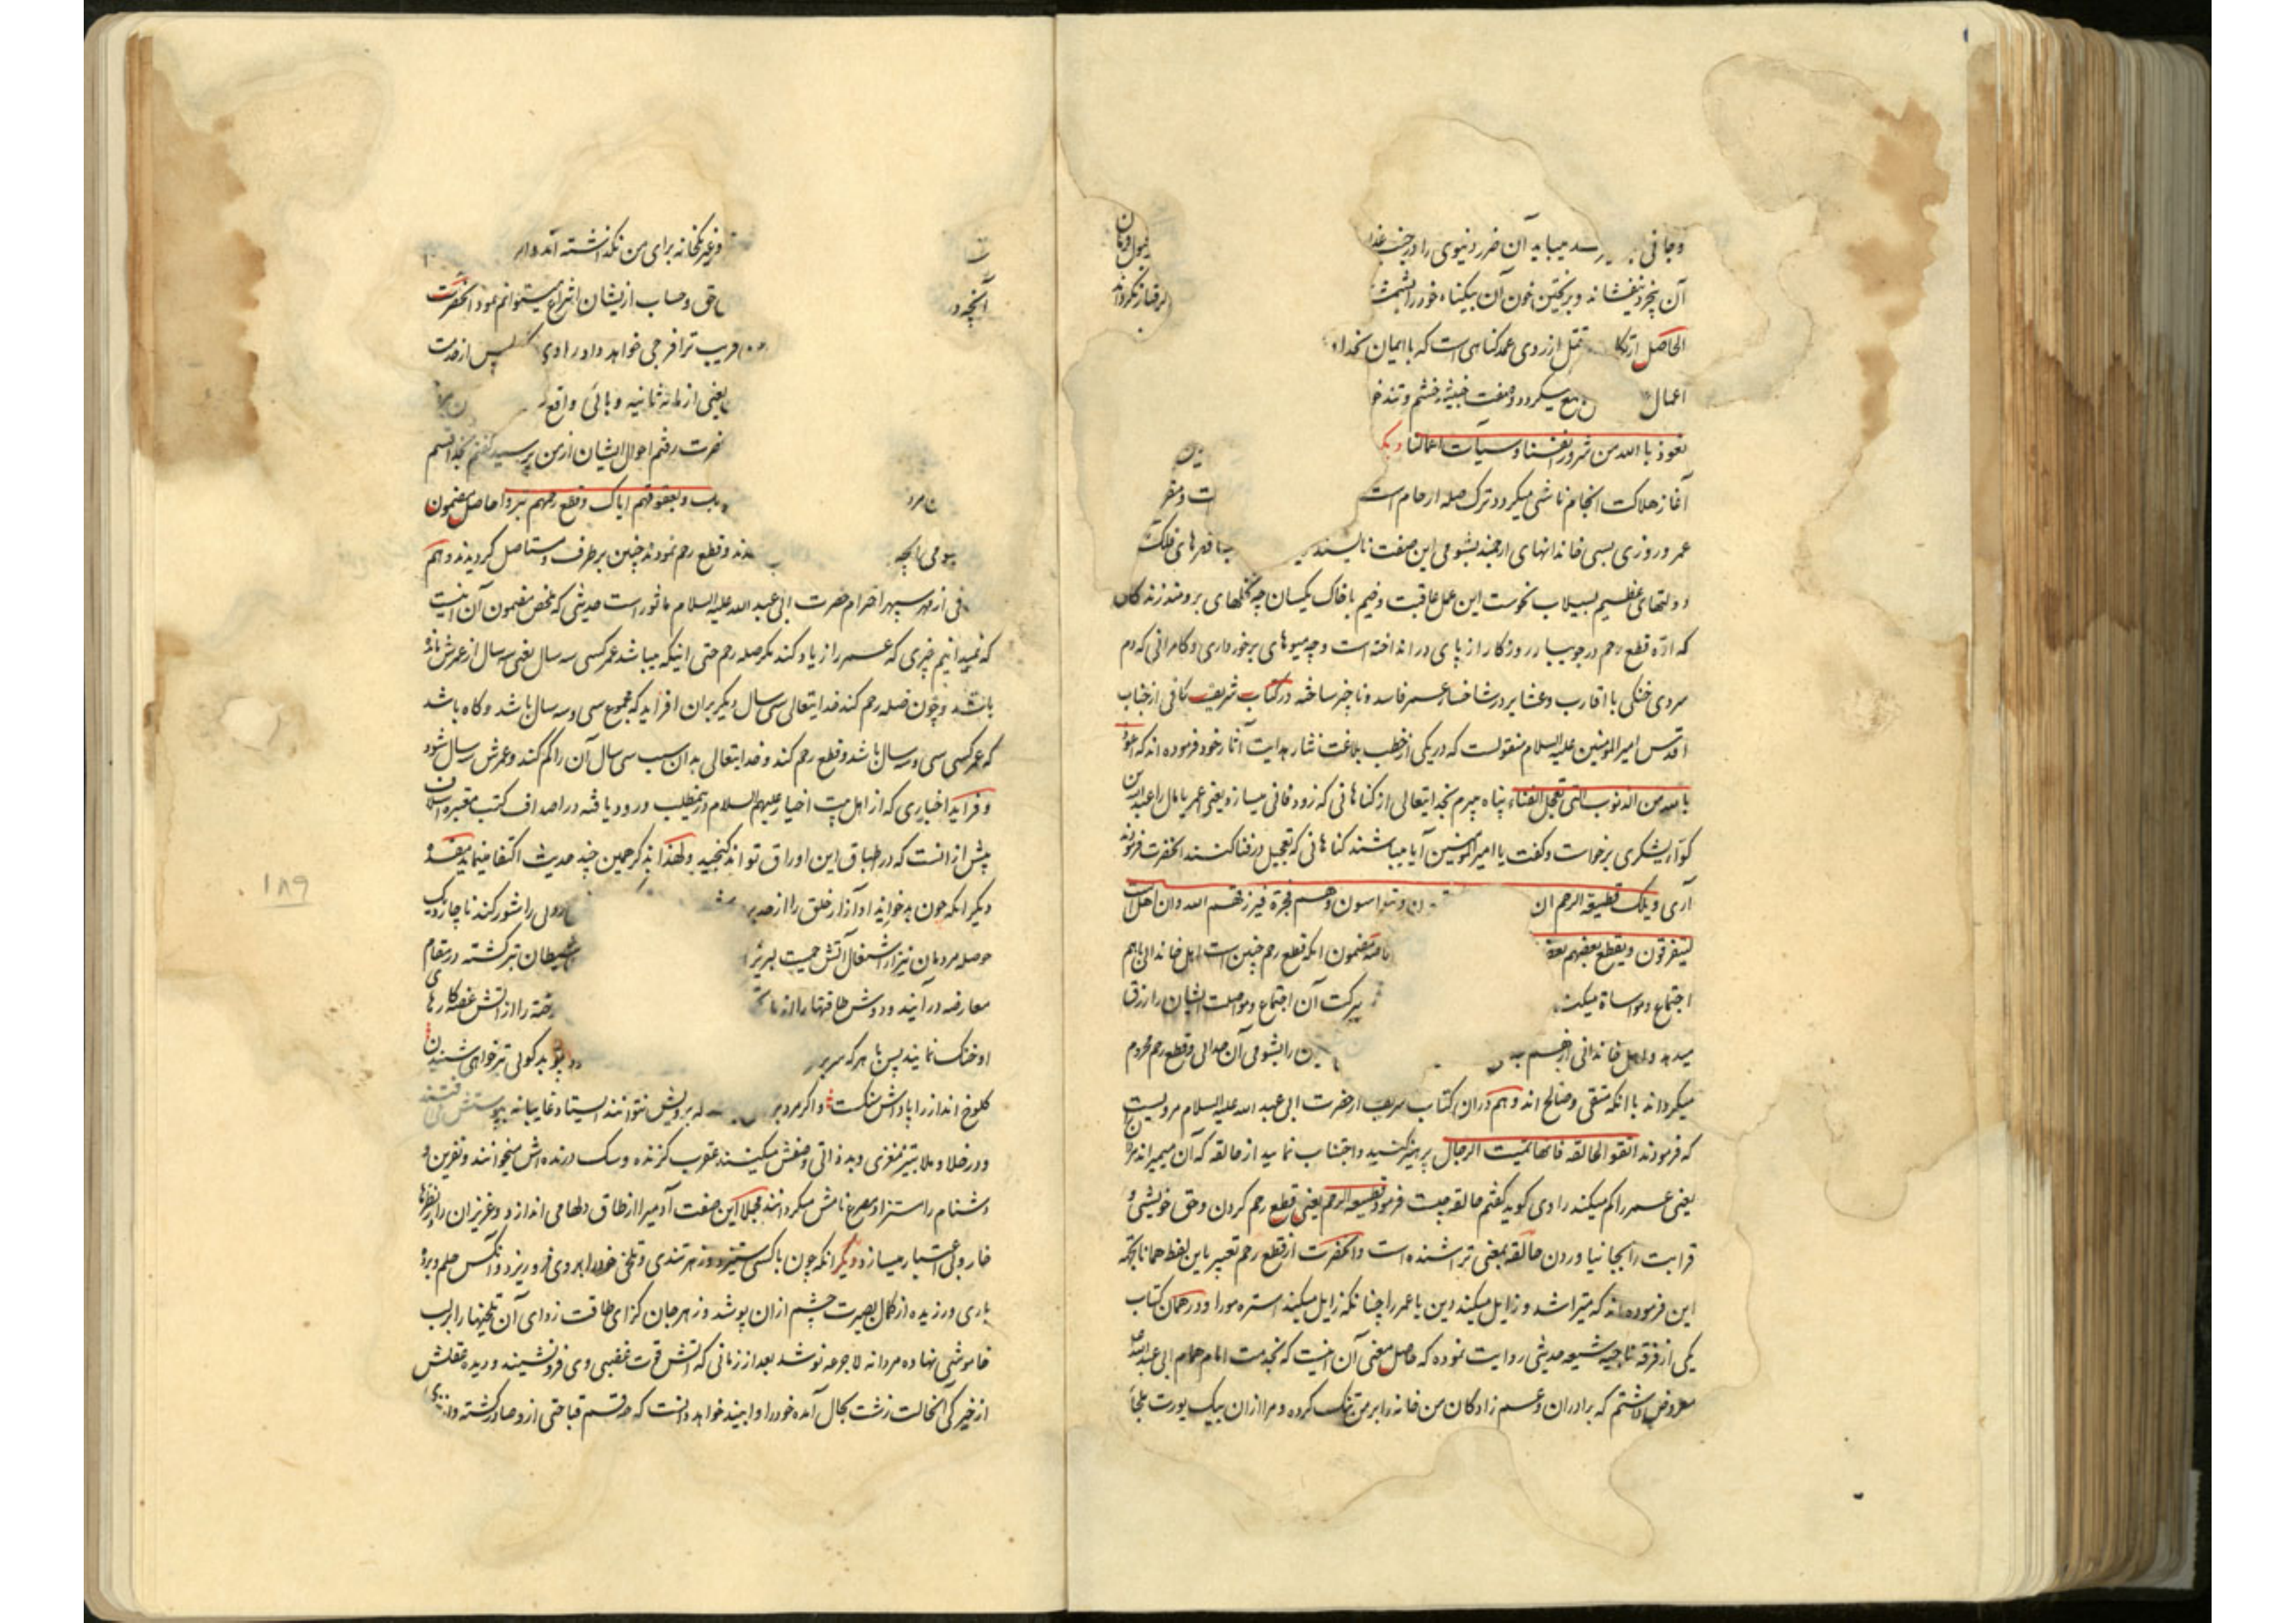 وجانی رسد میباید آن ضرر دنیوی را در جنب عذا
آن بخرد بنفشاند و بریختن خون آن بیکناه خود را
الحاصل ارتکا قتل از روی عمد کناهی است که با ایمان بخدا و
اعمال جمع میکردد و صفت خبیثه خشم و تندخو
نعوذ بالله من شرور انفسنا و سیآت اعمالنا و دیکر
آغاز هلاکت انجام ناشی میکردد ترک صله ارحام است
عمر و روزی بسی خاندانهای ارجمند بشومی این صفت ناپسندیده
دولتهای عظیم بسیلاب نحوست این عمل عاقبت وخیم با خاک یکسان چه نخلهای برومند زندکان
که ارّه قطع رحم در جویبار روزکار از پای در انداخته است و چه میوهای برخورداری و کامرانی که دم
سردی خنکی با اقارب و عشایر در شاخسار عمر فاسد و ناچیز ساخته در کتاب شریف کافی از جناب
اقدس امیر المومنین علیه السلام منقولست که در یکی از خطب بلاغت نثار هدایت آثار خود فرموده اند که اعوذ
بالله من الذنوب التی تعجل الفناء پناه میبرم بخدایتعالی از کناهانی که زود فانی میسازد یعنی عمر یا مال را عبد الله بن
کوّاء یشکری برخواست و کفت یا امیر المومنین آیا میباشند کناهانی که تعجیل در فنا کنند آنحضرت فرمودند
آری ویلک قطیعة الرحم ان ون و یتواسون و هم فجرة فیرزقهم الله و ان اهل البیت
لیتفرقون و یقطع بعضهم بعضا مضمون آنکه قطع رحم چنین است اهل خاندان باهم
اجتماع و مواساة میکنند ببرکت آن اجتماع و مواصلت ایشان را رزق
میدهد و اهل خاندانی از هم را بشومی آن جدائی و قطع رحم محروم
میکرداند با آنکه متقی و صالح اند و هم در ان کتاب شریف از حضرت ابی عبد الله علیه السلام مرویست
که فرمودند اتقوا الحالقة فانها تمیت الرجال پرهیز کنید و اجتناب نمایید از حالقه که آن میمیراند مردان
یعنی عمر را کم میکند راوی کوید کفتم حالقه چیست فرمود قطیعة الرحم یعنی قطع رحم کردن و حق خویشی و
قرابت را بجا نیاوردن حالقه بمعنی تراشنده است و آنحضرت از قطع رحم تعبیر باین لفظ همانا بجهة
این فرموده اند که میتراشد و زایل میکند دین یا عمر را چنانکه زایل میکند استره مو را و در همان کتاب
یکی از فرقه ناجیه شیعه حدیثی روایت نموده که حاصل معنی آن اینست که بخدمت امام همام ابی عبد الله
معروض داشتم که برادران و عم زادکان من خانه را بر من تنک کرده و مرا از ان بیک یورت ملجا
و غیر یکخانه برای من نکذاشته اند و اراد
حق و حساب از یشان انتزاع میتوانم نمود آنحضرت
قریب ترا فرجی خواهد داد راوی پس از مدت
یعنی از مائه ثانیه وبائی واقع
حضرت رفتم احوال ایشان از من پرسید کفتم بخدا قسم
و بعقوقهم ایاک و قطع رحمهم بتروا حاصل مضمون
بشومی آنچه و قطع رحم نمودند چنین برطرف و مستاصل کردیدند و هم
فی از مهر سپهر احترام حضرت ابی عبد الله علیه السلام ماثور است حدیثی که ملخص مضمون آن اینست
که نمیدانیم چیزی که عمر را زیاد کند مکر صله رحم حتی اینکه میباشد عمر کسی سه سال یعنی سه سال از عمرش مانده
باشد و چون صله رحم کند خدایتعالی سی سال دیکر بران افزاید که مجموع سی و سه سال باشد و کاه باشد
که عمر کسی سی و سه سال باشد و قطع رحم کند و خدایتعالی بدان سبب سی سال آن را کم کند و عمرش سه سال شود
و فراید اخباری که از اهل بیت اخیار علیهم السلام در نمطلب ورود یافته در اصداف کتب معتبره ایشان
بیش از انست که در اطباق این اوراق تواند کنجید و لهذا بذکر همین چند حدیث اکتفا مینماید مفسده
دیکر آنکه چون بدخوئیها و آزار خلق را از حد برد دل را مشور کند ناچار دیک
حوصله مردمان نیز از اشتعال آتش حمیت لبریز شیطان تبر کشته در مقام
معارضه درآیند و دوش طاقتها را از بار رخته را از آتش غضه کارها
او خنک نمایند پس با هر که سر بسر بد کوئی تیز خواهی شنیدن
کلوخ انداز را پاداش سنکست و اکر مردم برویش نتوانند ایستاد غایبانه
و در خلا و ملا بتیز مغزی و بد ذاتی وصفش میکنند عقرب کزنده و سک درنده اش میخوانند و نفرین و
دشنام را مستزاد مصرع نامش میکردانند مجملا این صفت آدمی را از طاق دلها می اندازد و عزیزان را در نظرها
خار و بی اعتبار میسازد و دیکر آنکه چون با کسی ستیزد و زهر تندی و تلخی خود را بر وی فرو ریزد و آنکس حلم و برد
باری ورزیده از کمال بصیرت چشم از ان پوشد و زهر جان کزای طاقت زدای آن تلخیها را برلب
خاموشی نهاده مردانه لاجرعه نوشد بعد از زمانی که آتش قوت غضبی وی فرو نشیند و دیده عقلش
از خیرکی آنحالت زشت بحال آمده خود را وابیند خواهد دانست که چه قسم قباحتی از و صادر کشته و از
۱۸۹